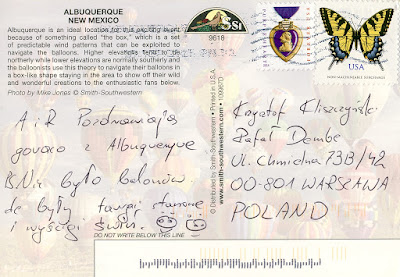 ALBUQUERQUE
NEW MEXICO
Albuquerque is an ideal location for this exciting event
because of something called "the box," which is a set
of predictable wind patterns that can be exploited to
navigate the balloons. Higher elevations tend to be
northerly while lower elevations are normally southerly and
the balloonists use this theory to navigate their balloons in
a box-like shape staying in the area to show off their wild
and wonderful creations to the enthusiastic fans below.
Photo by Mike Jones © Smith-Southwestern
A i R Pozdrawiają
gorąco z Albuquerque
B.N. nie było balonów
ale były tańce
i wyścigi
DO NOT WRITE BELOW THIS LINE
© Distributed by Smith-Southwestern • Printed in U.S.A.
www.smith-southwestern.com
9618
USA
Krzysztof Kliszczyński
Rafał Dembe
Ul. Chmielna 73B/42
00-801 WARSZAWA
POLAND